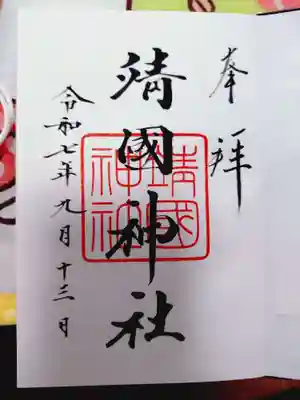 奉拝
靖國神社
靖國
神社
令和七年九月十三日